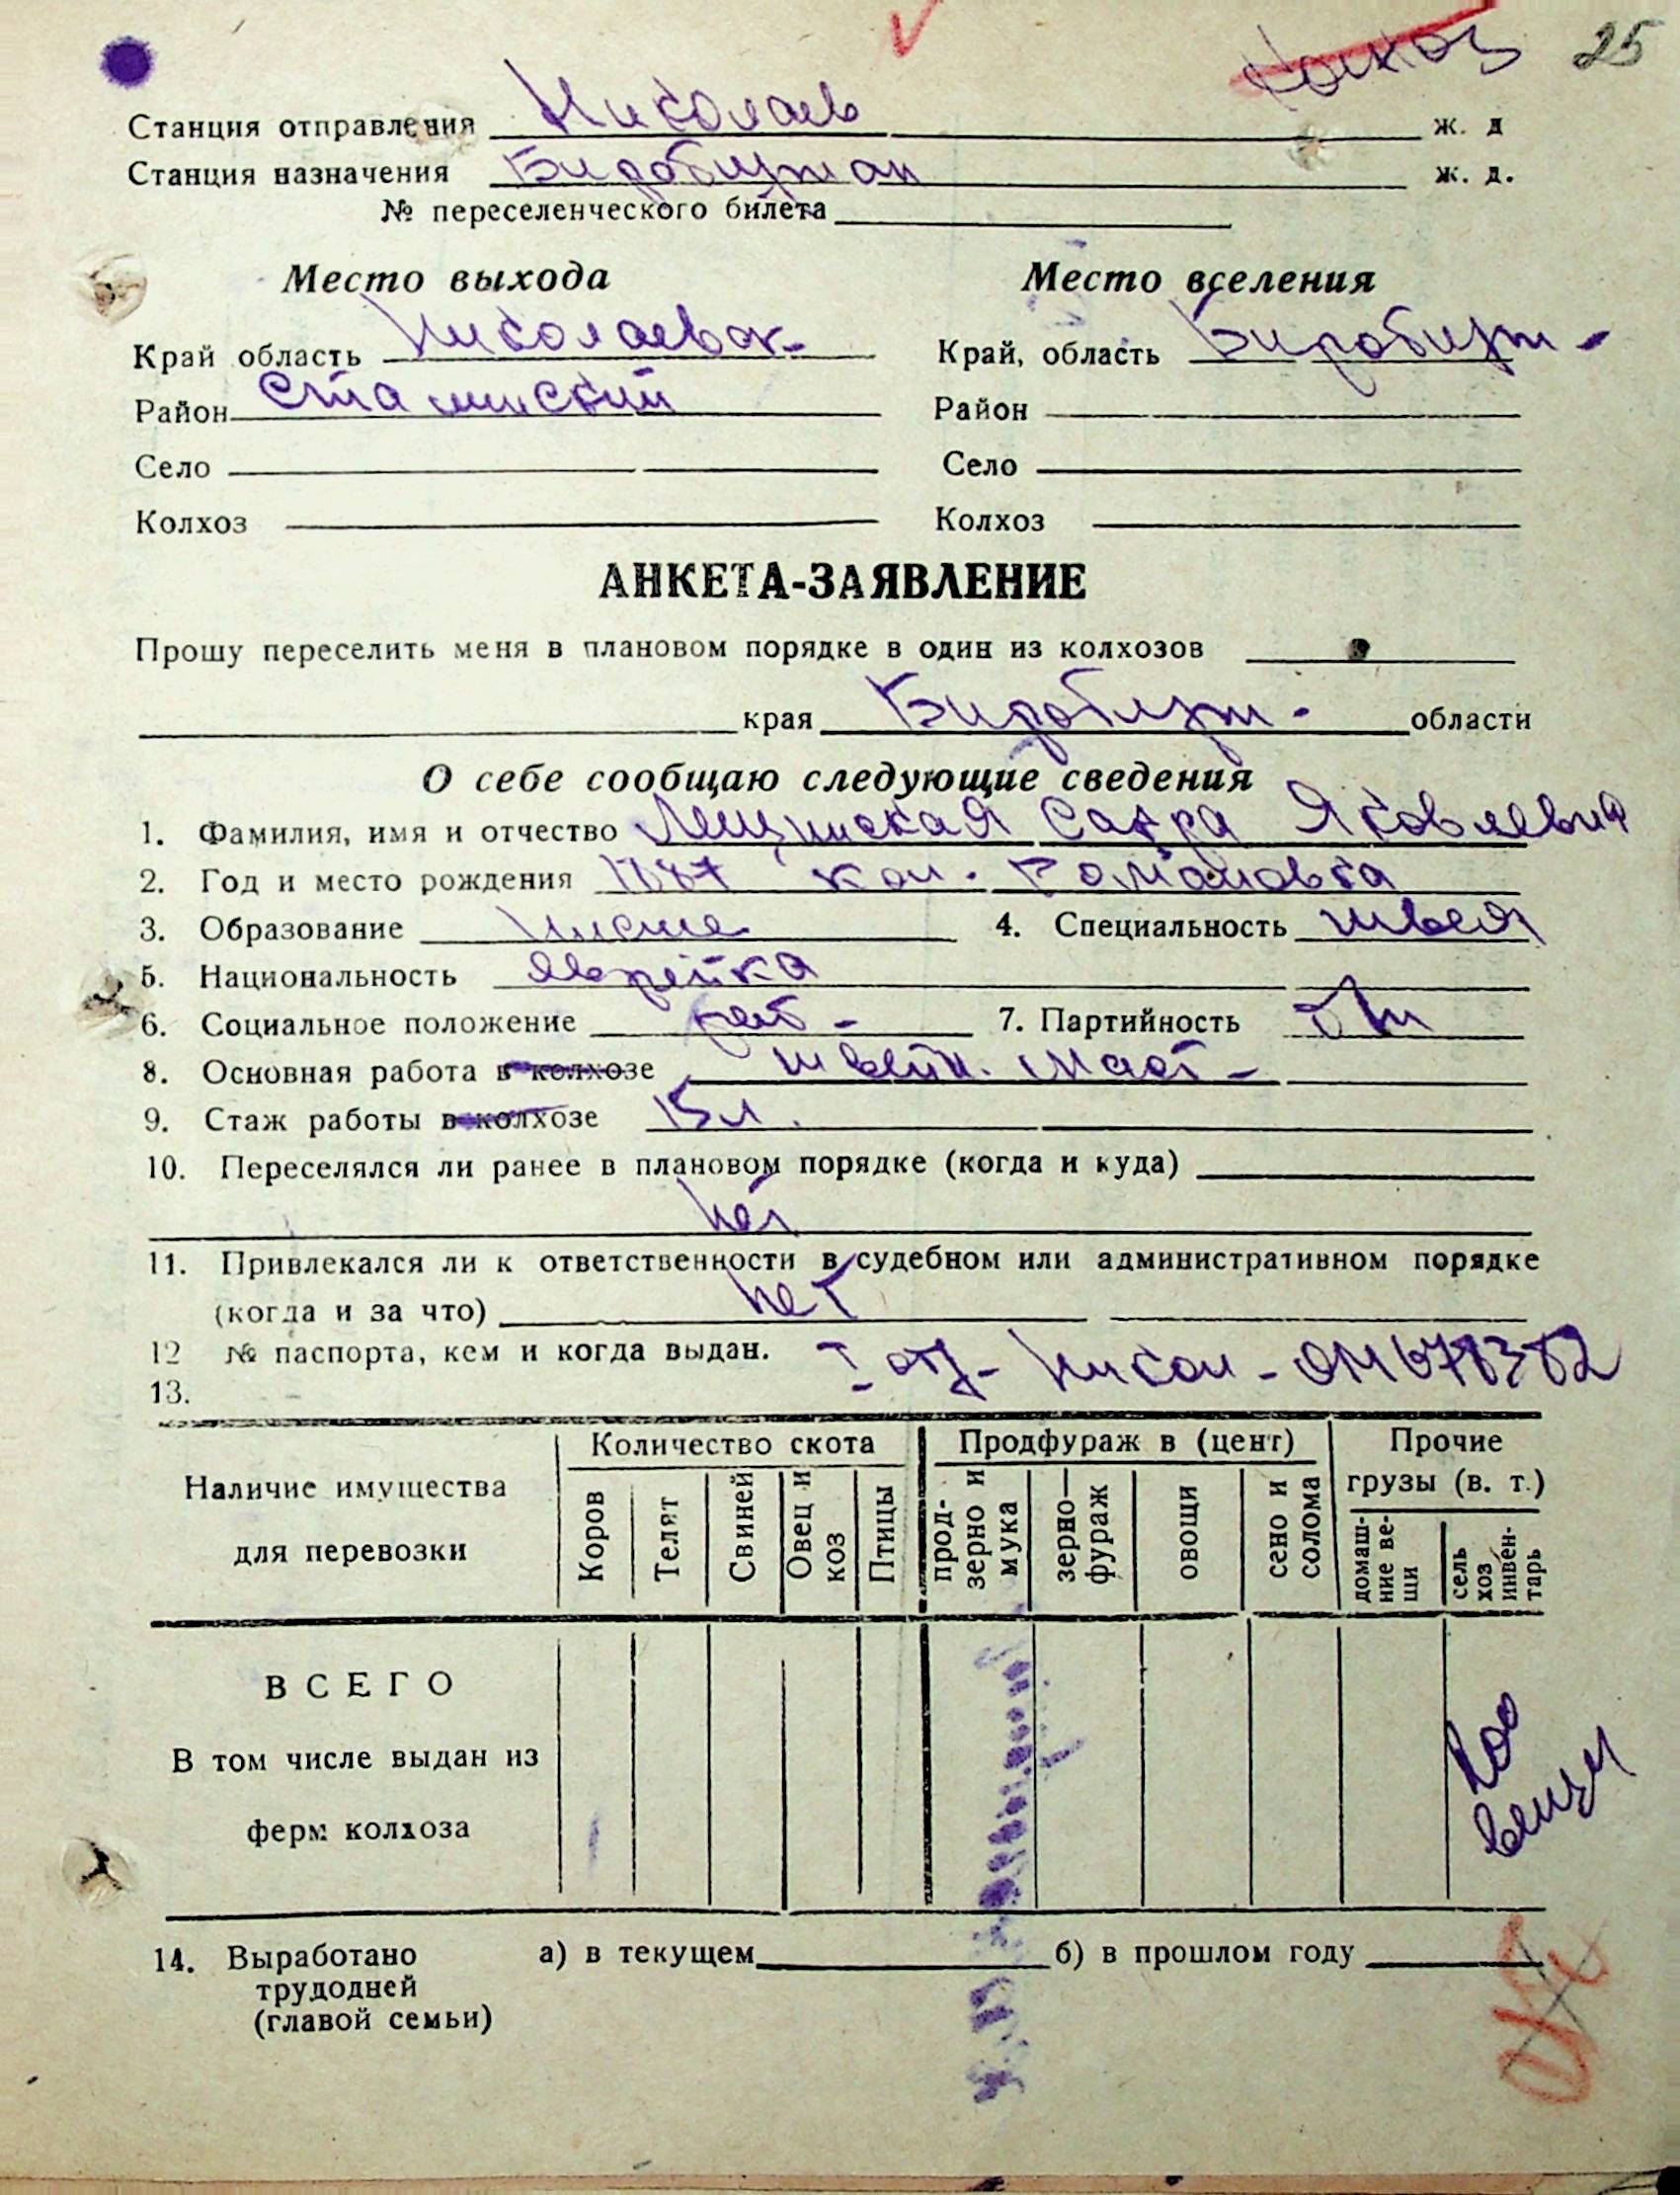 колхоз 25
Станция отправления Николаев ж. д
Станция назначения Биробиджан ж. д.
№ переселенческого билета
Место выхода Место вселения
Край область Николаевск- Край, область Биробидж-
Район Сталинский Район
Село Село
Колхоз Колхоз
АНКЕТА-ЗАЯВЛЕНИЕ
Прошу переселить меня в плановом порядке в один из колхозов
края Биробидж- области
О себе сообщаю следующие сведения
1. Фамилия, имя и отчество Лещинская Сарра Яковлевна
2. Год и место рождения кол. Романовка
3. Образование низшее 4. Специальность швея
5. Национальность еврейка
6. Социальное положение раб- 7. Партийность б/п
8. Основная работа в колхозе швейн. маст-
9. Стаж работы в колхозе 15 л.
10. Переселялся ли ранее в плановом порядке (когда и куда)
нет
11. Привлекался ли к ответственности в судебном или административном порядке
(когда и за что) нет
12 № паспорта, кем и когда выдан. I отд- Никол-
13.
Наличие имущества для перевозки
Количество скота Продфураж в (цент) Прочие грузы (в. т.)
Коров Телят Свиней Овец и коз Птицы прод-зерно и мука зерно-фураж овощи сено и солома домаш-ние ве-щи сель хоз инвен-тарь
ВСЕГО
В том числе выдан из
ферм колхоза
вещи
14. Выработано а) в текущем б) в прошлом году
трудодней
(главой семьи)